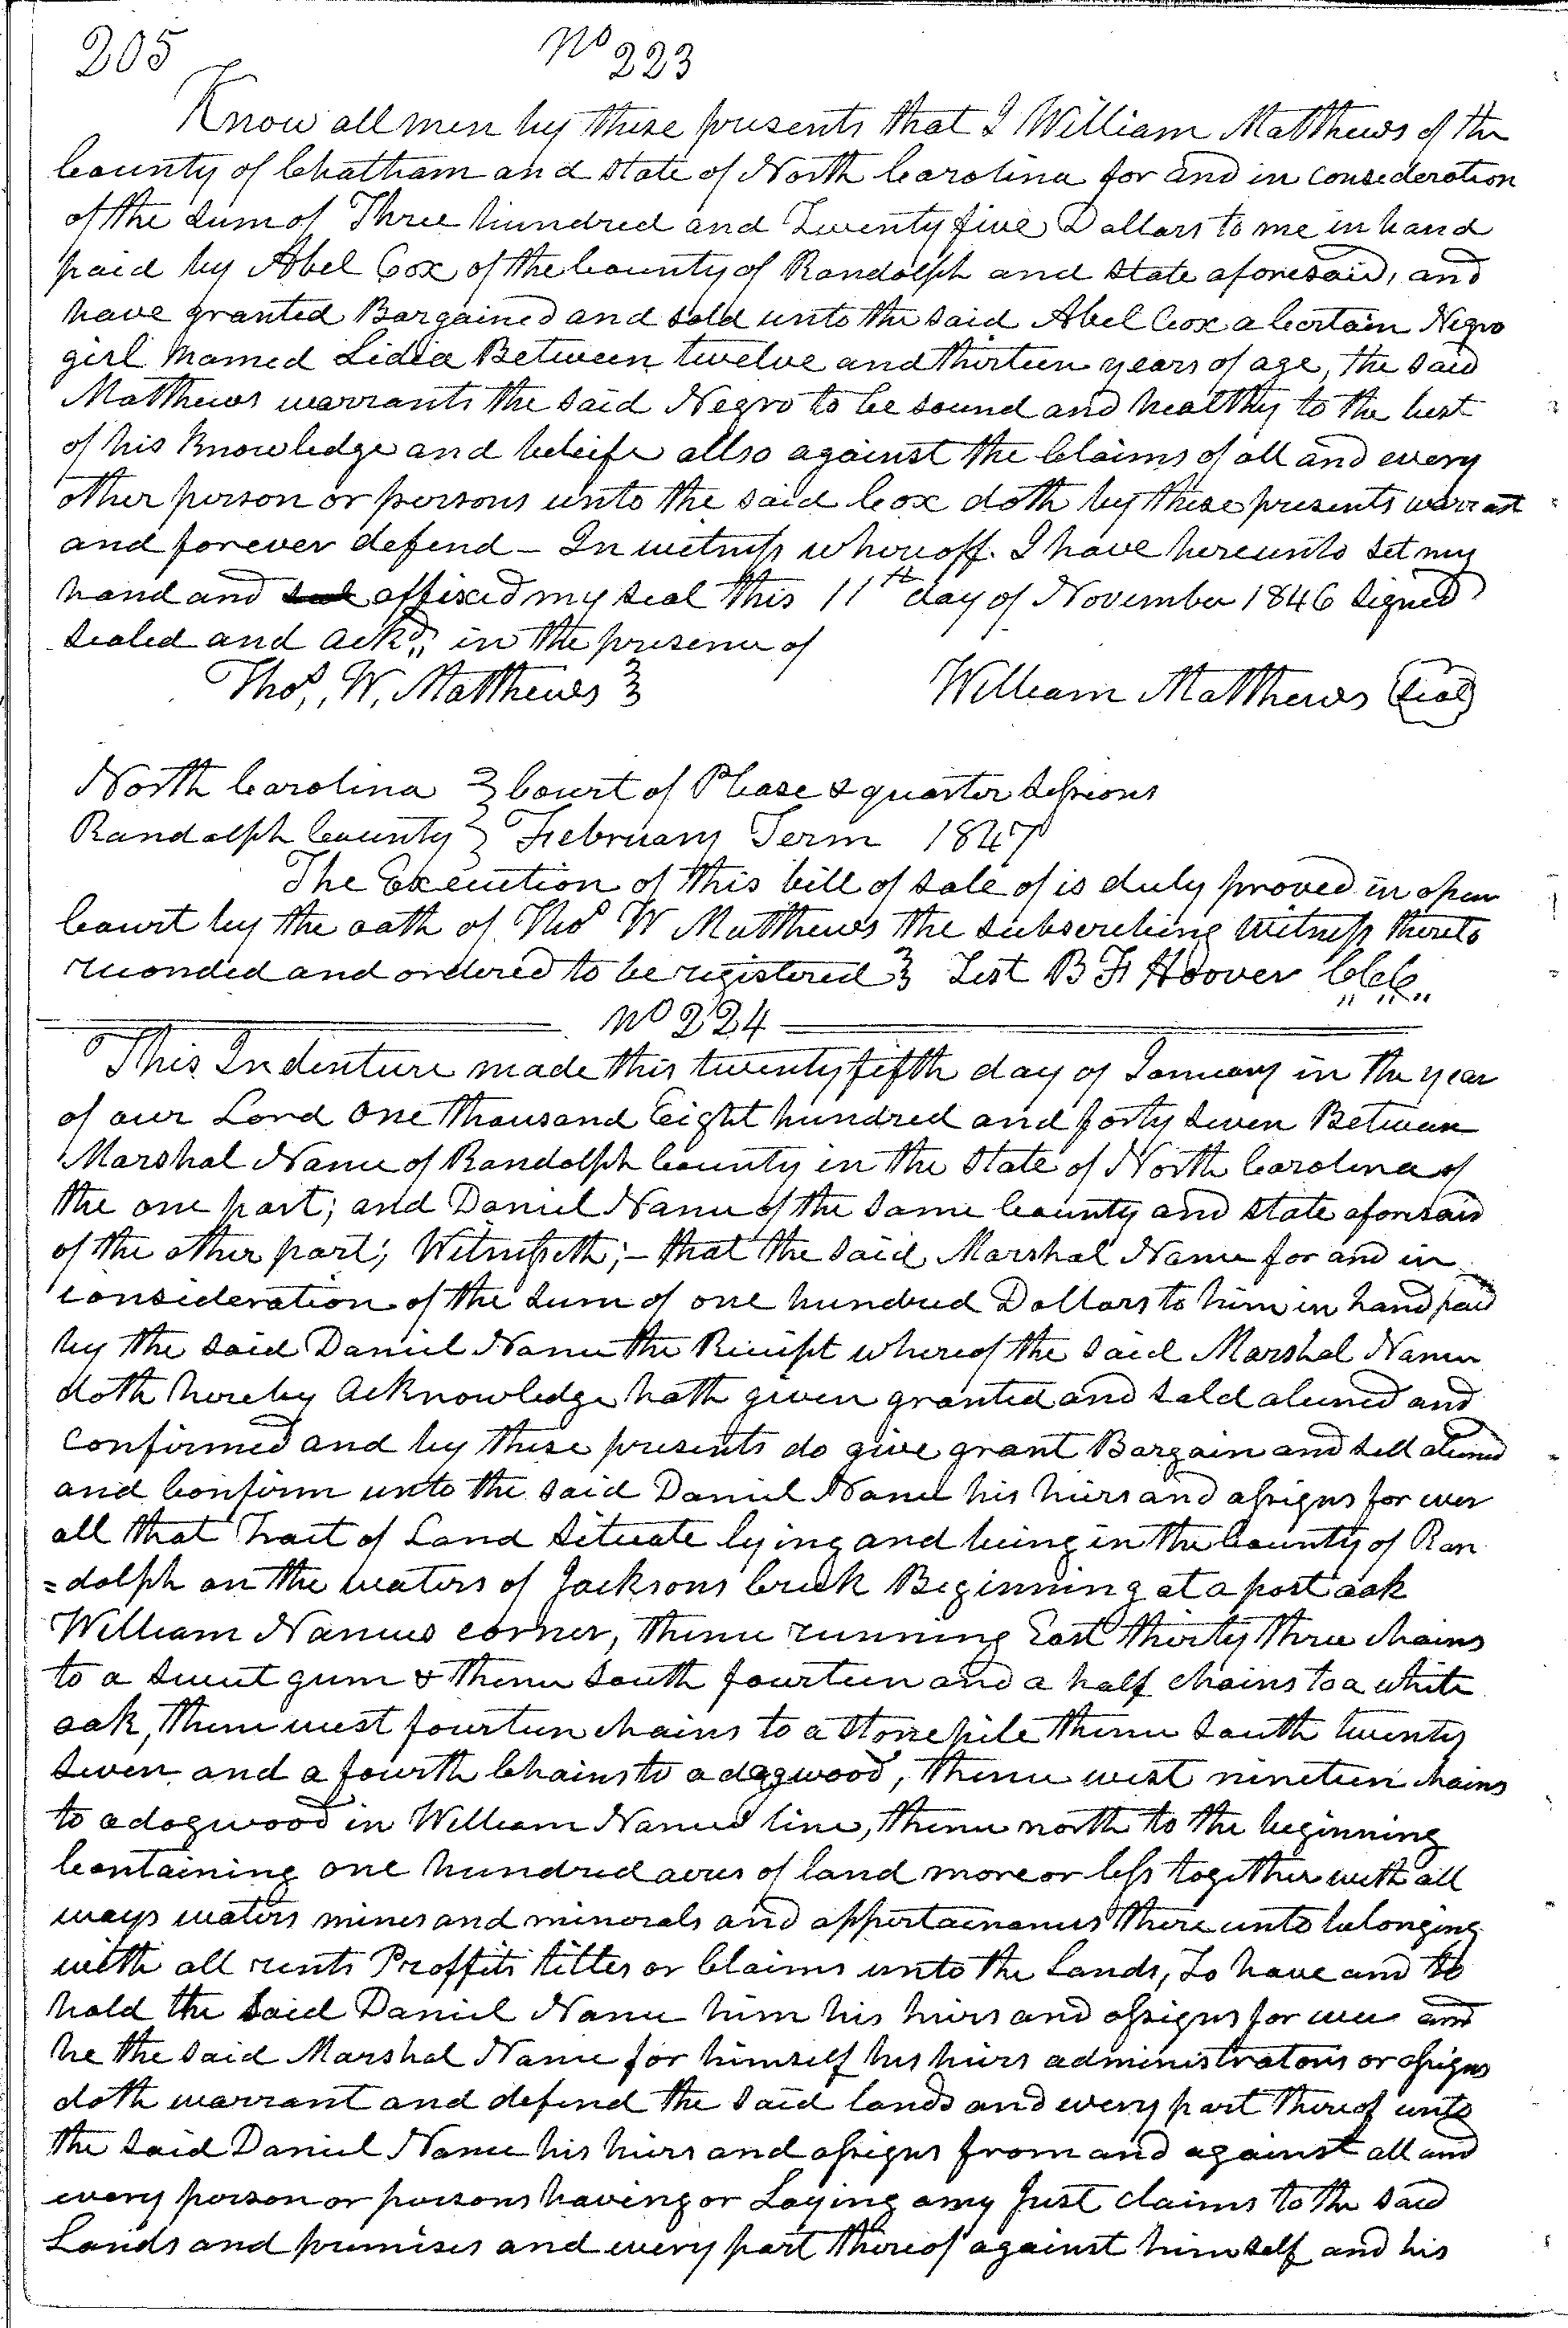 205
No 223
Know all men by these presents that I William Matthews of the
County of Chatham and state of North Carolina for and in consederation
of the sum of Three hundred and Twenty five Dollars to me in hand
paid by Abel Cox of the County of Randolph and state aforesaid, and
have granted Bargained and sold unto the said Abel Cox a Certain Negro
girl Named Lidia Between twelve and thirteen years of age, the said
Matthews warrants the said Negro to be sound and healthy to the best
of his Knowledge and beleife allso against the Claims of all and every
other person or persons unto the said Cox doth by these presents warrant
and forever defend - In witness whereoff. I have hereunto set my
hand and affixed my seal this 11th day of November 1846 signed
sealed and ackd,, in the presence of
Thos,, W. Matthews
William Matthews (seal)
North Carolina } Court of Please & quarter sessions
Randolph County } February Term 1847
The Execution of this bill of sale of is duly proved in open
Court by the oath of Thos W Matthews the subscribing witness thereto
recorded and ordered to be registered } Test B F Hoover CCC
No 224
This Indenture made this twenty fifth day of January in the year
of our Lord one thousand Eight hundred and forty seven Between
Marshal Nance of Randolph County in the state of North Carolina of
the one part; and Daniel Nance of the same County and state aforesaid
of the other part; Witnesseth; - that the said Marshal Nance for and in
consideration of the sum of one hundred Dollars to him in hand paid
by the said Daniel Nance the Receipt whereof the said Marshal Nance
doth hereby acknowledge hath given granted and sold aliened and
confirmed and by these presents do give grant Bargain and sell aliened
and Confirm unto the said Daniel Nance his heirs and assigns for ever
all that Tract of Land situate lying and being in the County of Ran
=dolph on the waters of Jacksons Creek Beginning at a post oak
William Nances corner, thence running East thirty three chains
to a sweet gum & thence south fourteen and a half chains to a white
oak, thence west fourteen chains to a stone pile thence south twenty
seven and a fourth Chains to a dogwood, thence west nineteen chains
to a dogwood in William Nances line, thence north to the beginning
Containing one hundred acres of land more or less together with all
ways waters mines and minorals and appertainances there unto belonging
with all rents Proffits titles or Claims unto the Lands, To have and to
hold the said Daniel Nance him his heirs and assigns for ever and
he the said Marshal Nance for himself his heirs administrators or assigns
doth warrant and defend the said lands and every part thereof unto
the said Daniel Nance his heirs and assigns from and against all and
every person or persons having or Laying any Just claims to the said
Lands and premises and every part thereof against himself and his